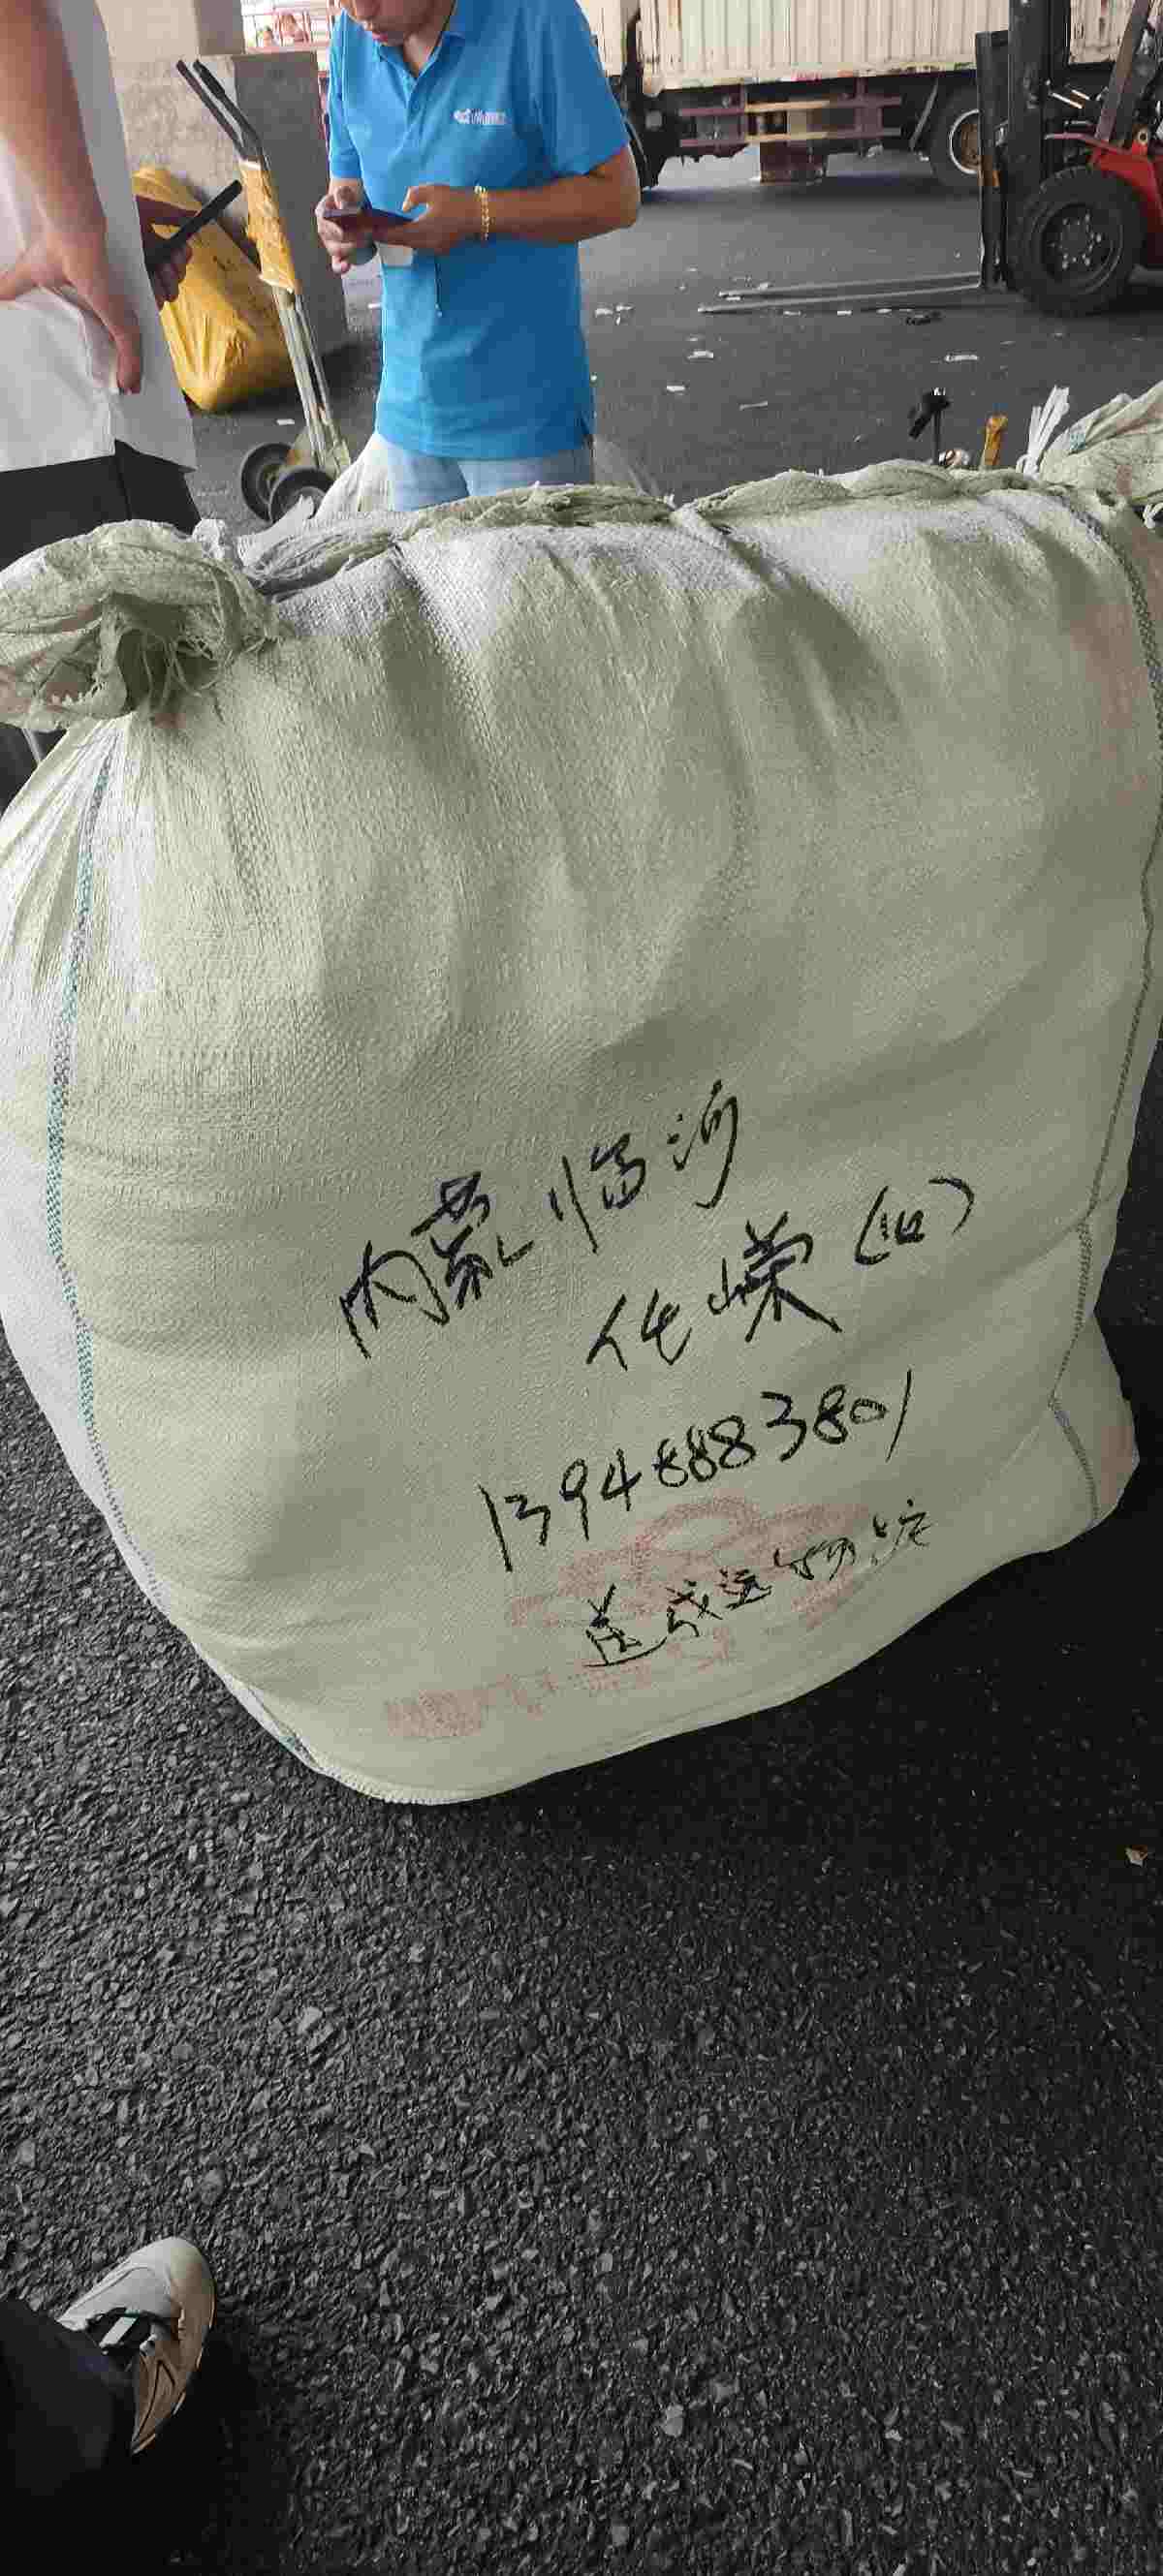 内蒙临河
化嵘(12)
13948883801
送成运物流